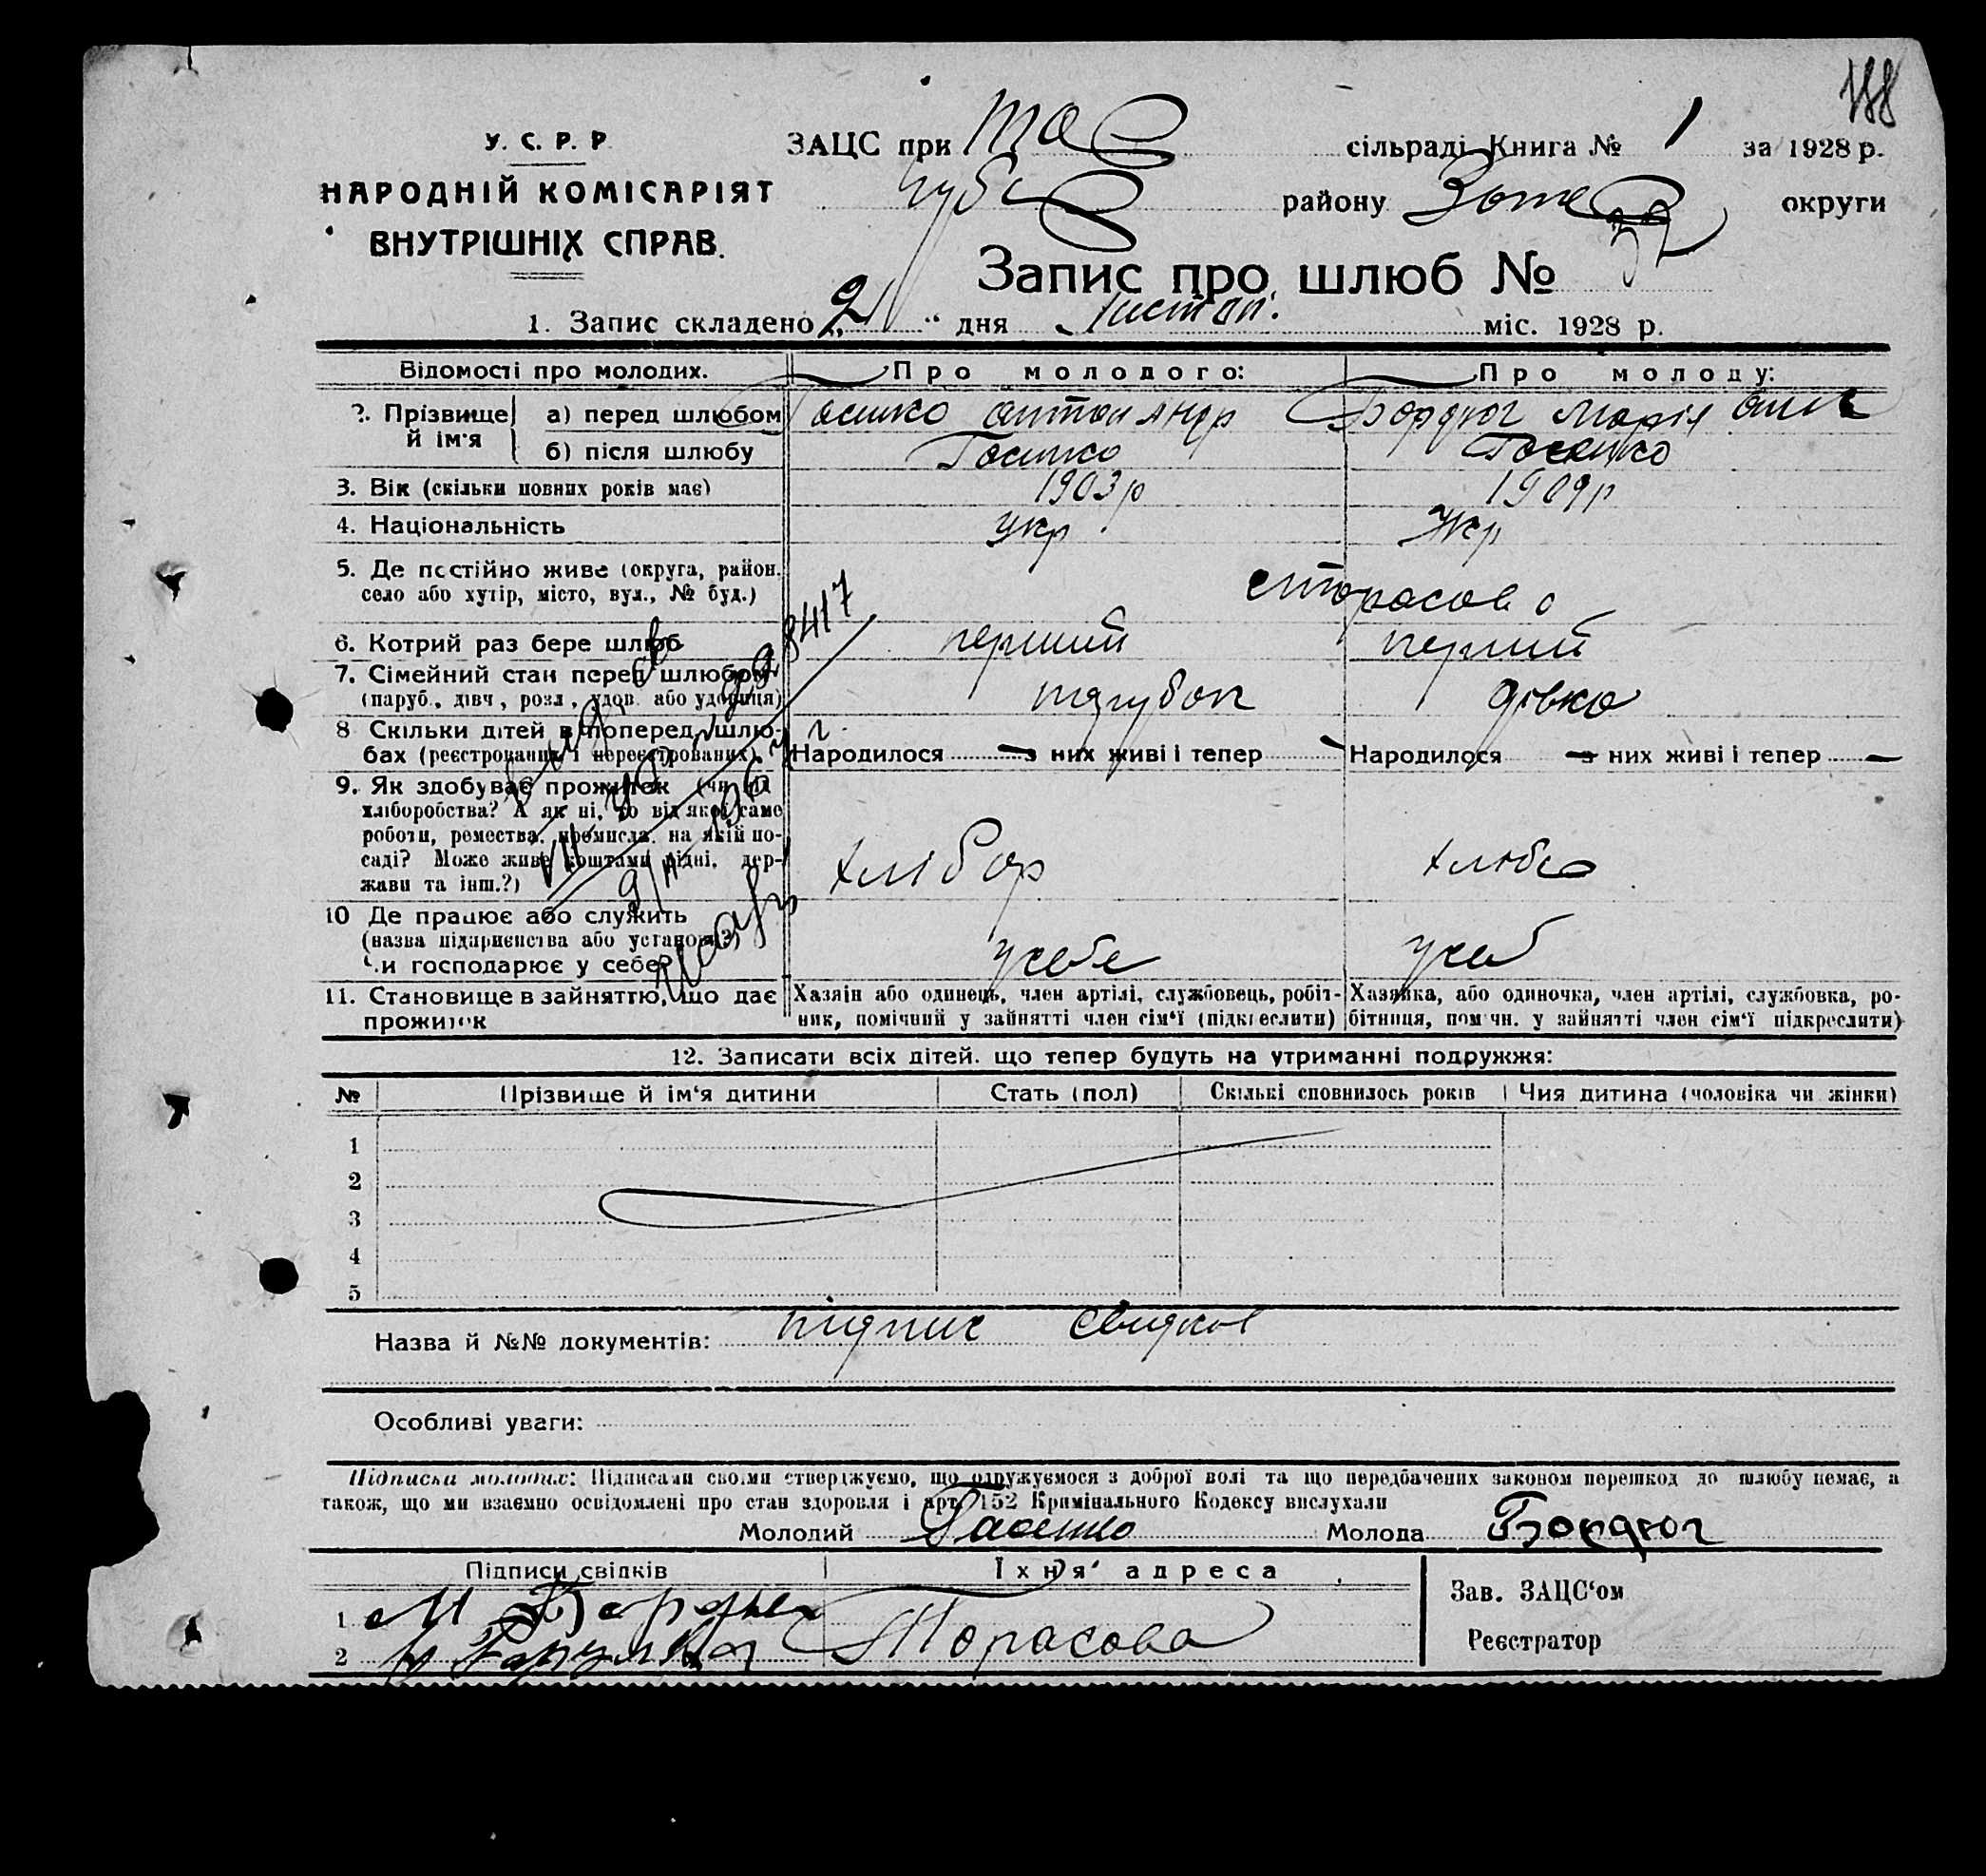 188
У. С. Р. Р
НАРОДНІЙ КОМІСАРІЯТ
ВНУТРІШНІХ СПРАВ.
ЗАЦС при Та сільраді Книга № 1 за 1928 р.
району округи
Запис про шлюб №
1. Запис складено „2“ дня листоп. міс. 1928 р.
Відомості про молодих. Про молодого: Про молоду:
2. Прізвище й ім'я а) перед шлюбом Антон Андр Марія
б) після шлюбу
3. Вік (скільки повних років має) 1903р 1909р
4. Національність укр Укр
5. Де постійно живе (округа, район,
село або хутір, місто, вул., № буд.)
6. Котрий раз бере шлюб перший перший
7. Сімейний стан перед шлюбом парубок дівка
(паруб., дівч, розл, удов. або удовиця)
8 Скільки дітей в поперед. шлю-
бах (реєстрованих і нереєстрованих) Народилося — з них живі і тепер — Народилося — з них живі і тепер —
9. Як здобуває прожиток (чи від
хліборобства? А як ні, то від якої саме
роботи, ремества, промисла, на якій по-
саді? Може живе коштами рідні, дер-
жави та інш.?) хлібор
10 Де працює або служить
(назва підприємства або установи)
чи господарює у себе? усебе усеб
11. Становище в зайняттю, що дає
прожиток
Хазяїн або одинець, член артілі, службовець, робіт-
ник, помічний у зайнятті член сім'ї (підкреслити)
Хазяйка, або одиночка, член артілі, службовка, ро-
бітниця, помічн. у зайнятті член сім'ї підкреслити)
12. Записати всіх дітей. що тепер будуть на утриманні подружжя:
№ Прізвище й ім'я дитини Стать (пол) Скількі сповнилось років Чия дитина (чоловіка чи жінки)
1
2
3
4
5
Назва й №№ документів: підпис свидков
Особливі уваги:
Підписка молодих: Підписами своїми стверджуємо, що одружуємося з доброї волі та що передбачених законом перешкод до шлюбу немає, а
також, що ми взаємно освідомлені про стан здоровля і арт. 152 Кримінального Кодексу вислухали
Молодий Молода
Підписи свідків Їхня адреса
Зав. ЗАЦС'ом
1 М
2 Торасова
Реєстратор